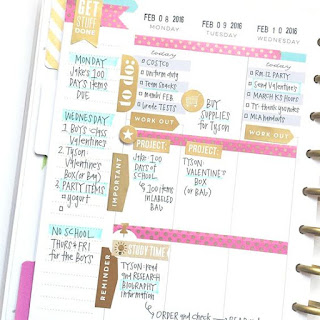 GET
STUFF
DONE
FEB 08 2016
MONDAY
FEB 09 2016
TUESDAY
FEB 10 2016
WEDNESDAY
MONDAY
JAKE'S 100
DAYS ITEMS
DUE
WEDNESDAY
1. BOYS CLASS
VALENTINES
2. TYSON-
VALENTINE'S
BOX (or BAG)
3. PARTY ITEMS
yogurt
NO SCHOOL
THURS & FRI
for the BOYS
to do:
today
COSTCO
Uniform duty
Team Snacks
Grade TESTS
WORK OUT
BUY
SUPPLIES
for Tyson
today
RM 12 PARTY
Send Valentines
MARCH KS HOURS
MIA handouts
WORK OUT
IMPORTANT
PROJECT:
JAKE-100
DAYS of
SCHOOL
100 ITEMS
IN LABELED
BAG
PROJECT:
TYSON-
VALENTINE'S
BOX
(or BAG)
REMINDER
STUDY TIME
TYSON-read
and RESEARCH
BIOGRAPHY
information
ORDER and check